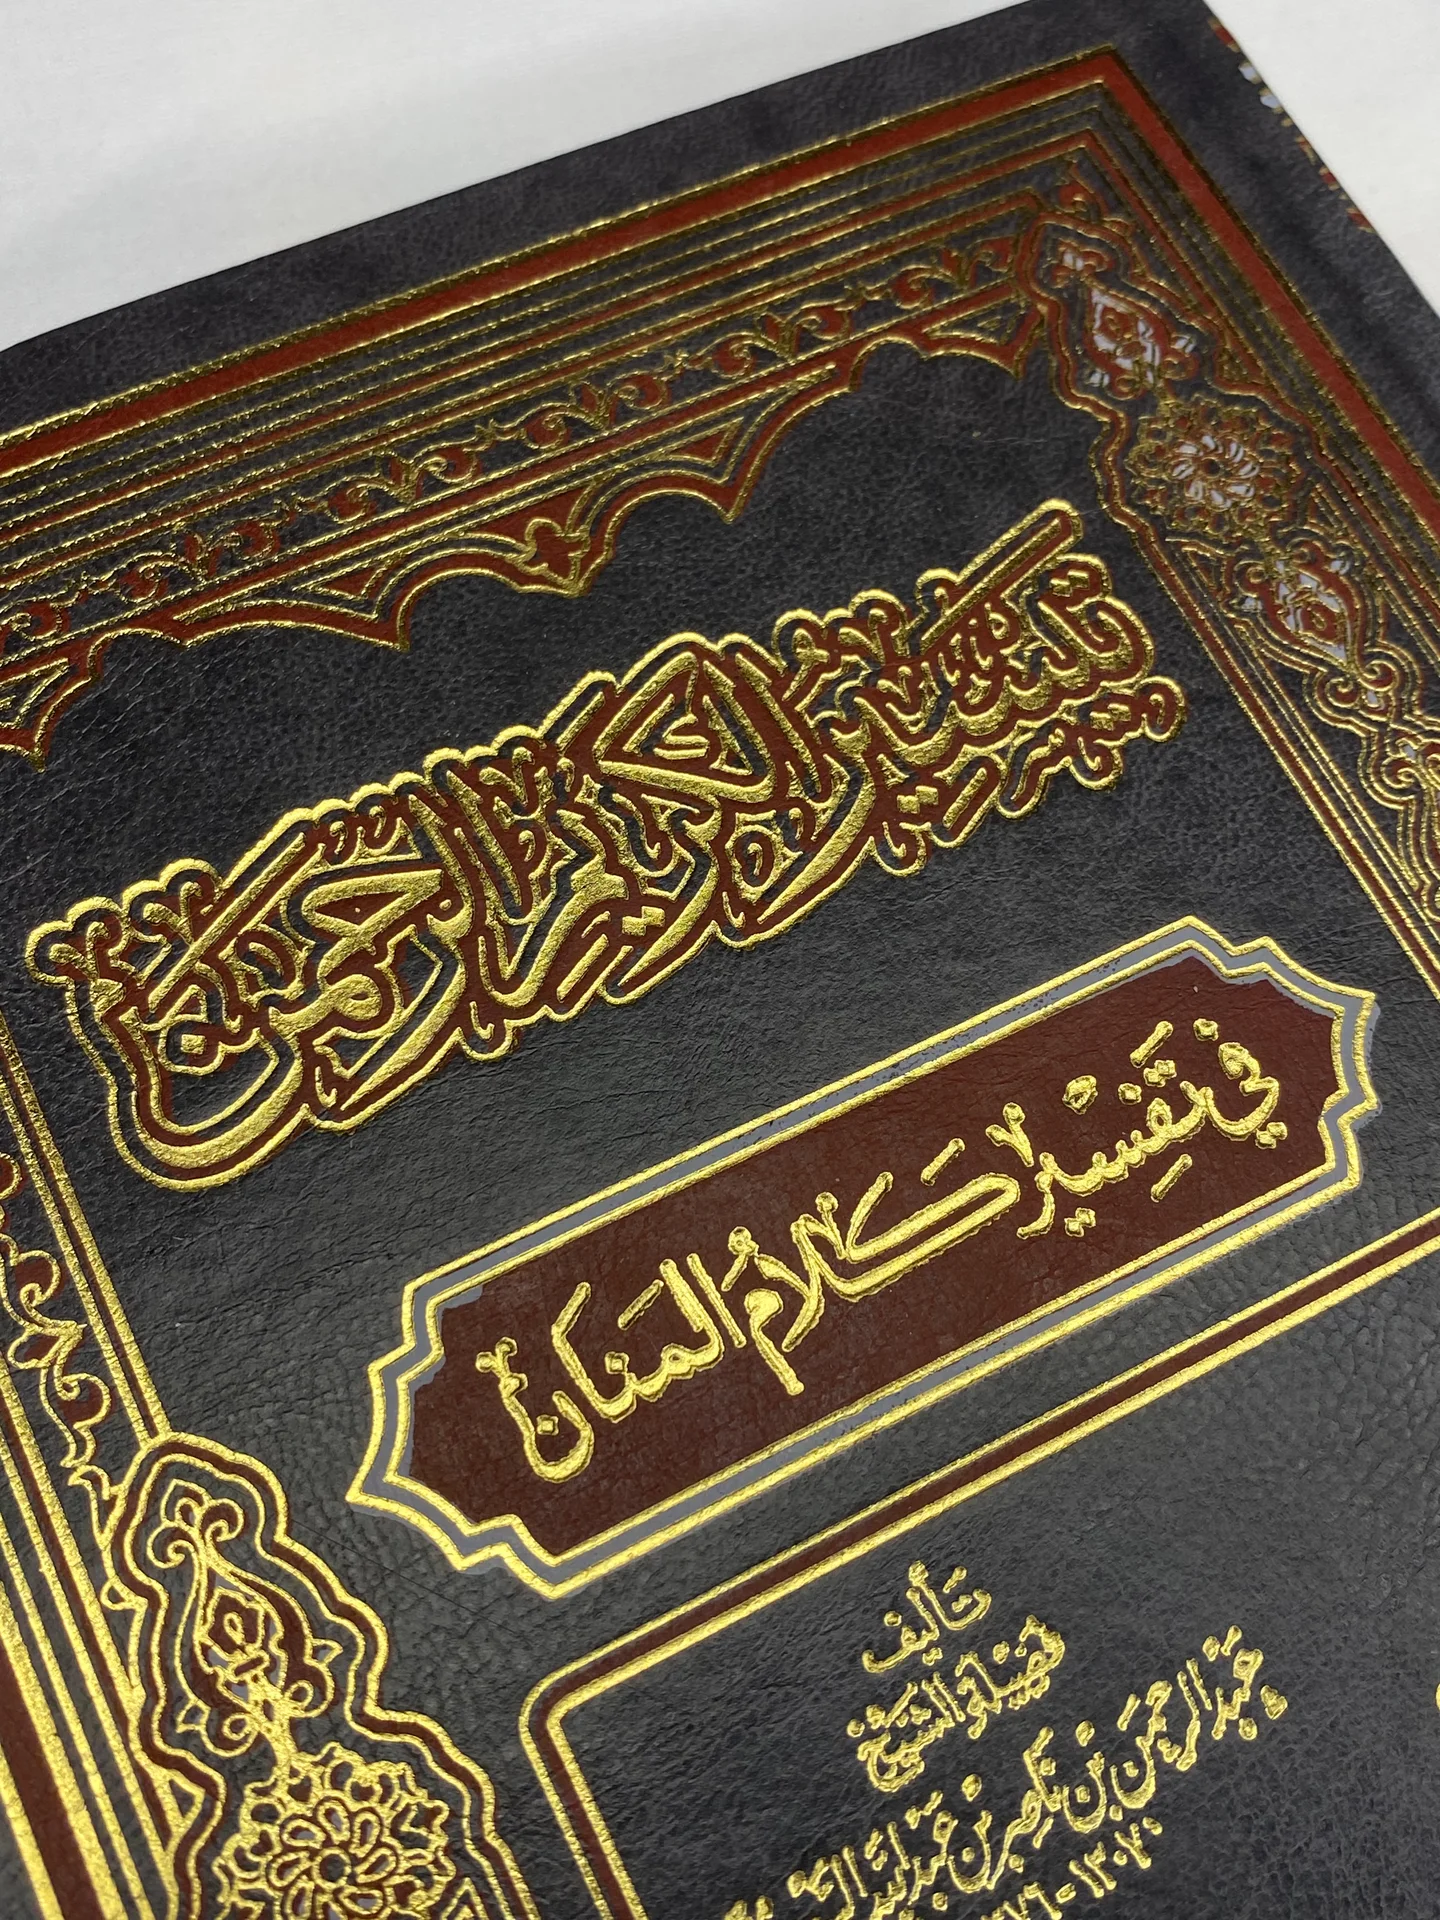 تيسير الكريم الرحمن
في تفسير كلام المنان
تأليف
فضيلة الشيخ
عبد الرحمن بن ناصر بن عبد الله
١٣٠٧